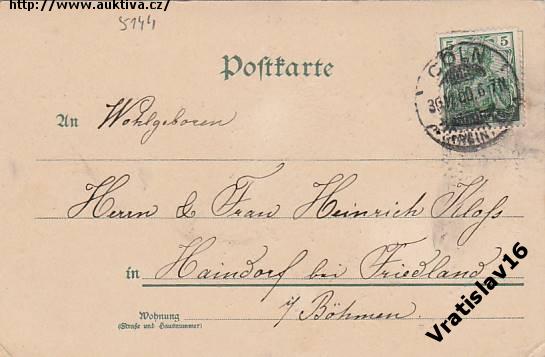 https://www.auktiva.cz/
5144
Postkarte
5 5
CÖLN
An Wohlgeboren
Herrn & Frau Heinrich Kloss
in Haindorf bei Friedland
i/ Böhmen.
Wohnung
(Straße und Hausnummer)
Vratislav16